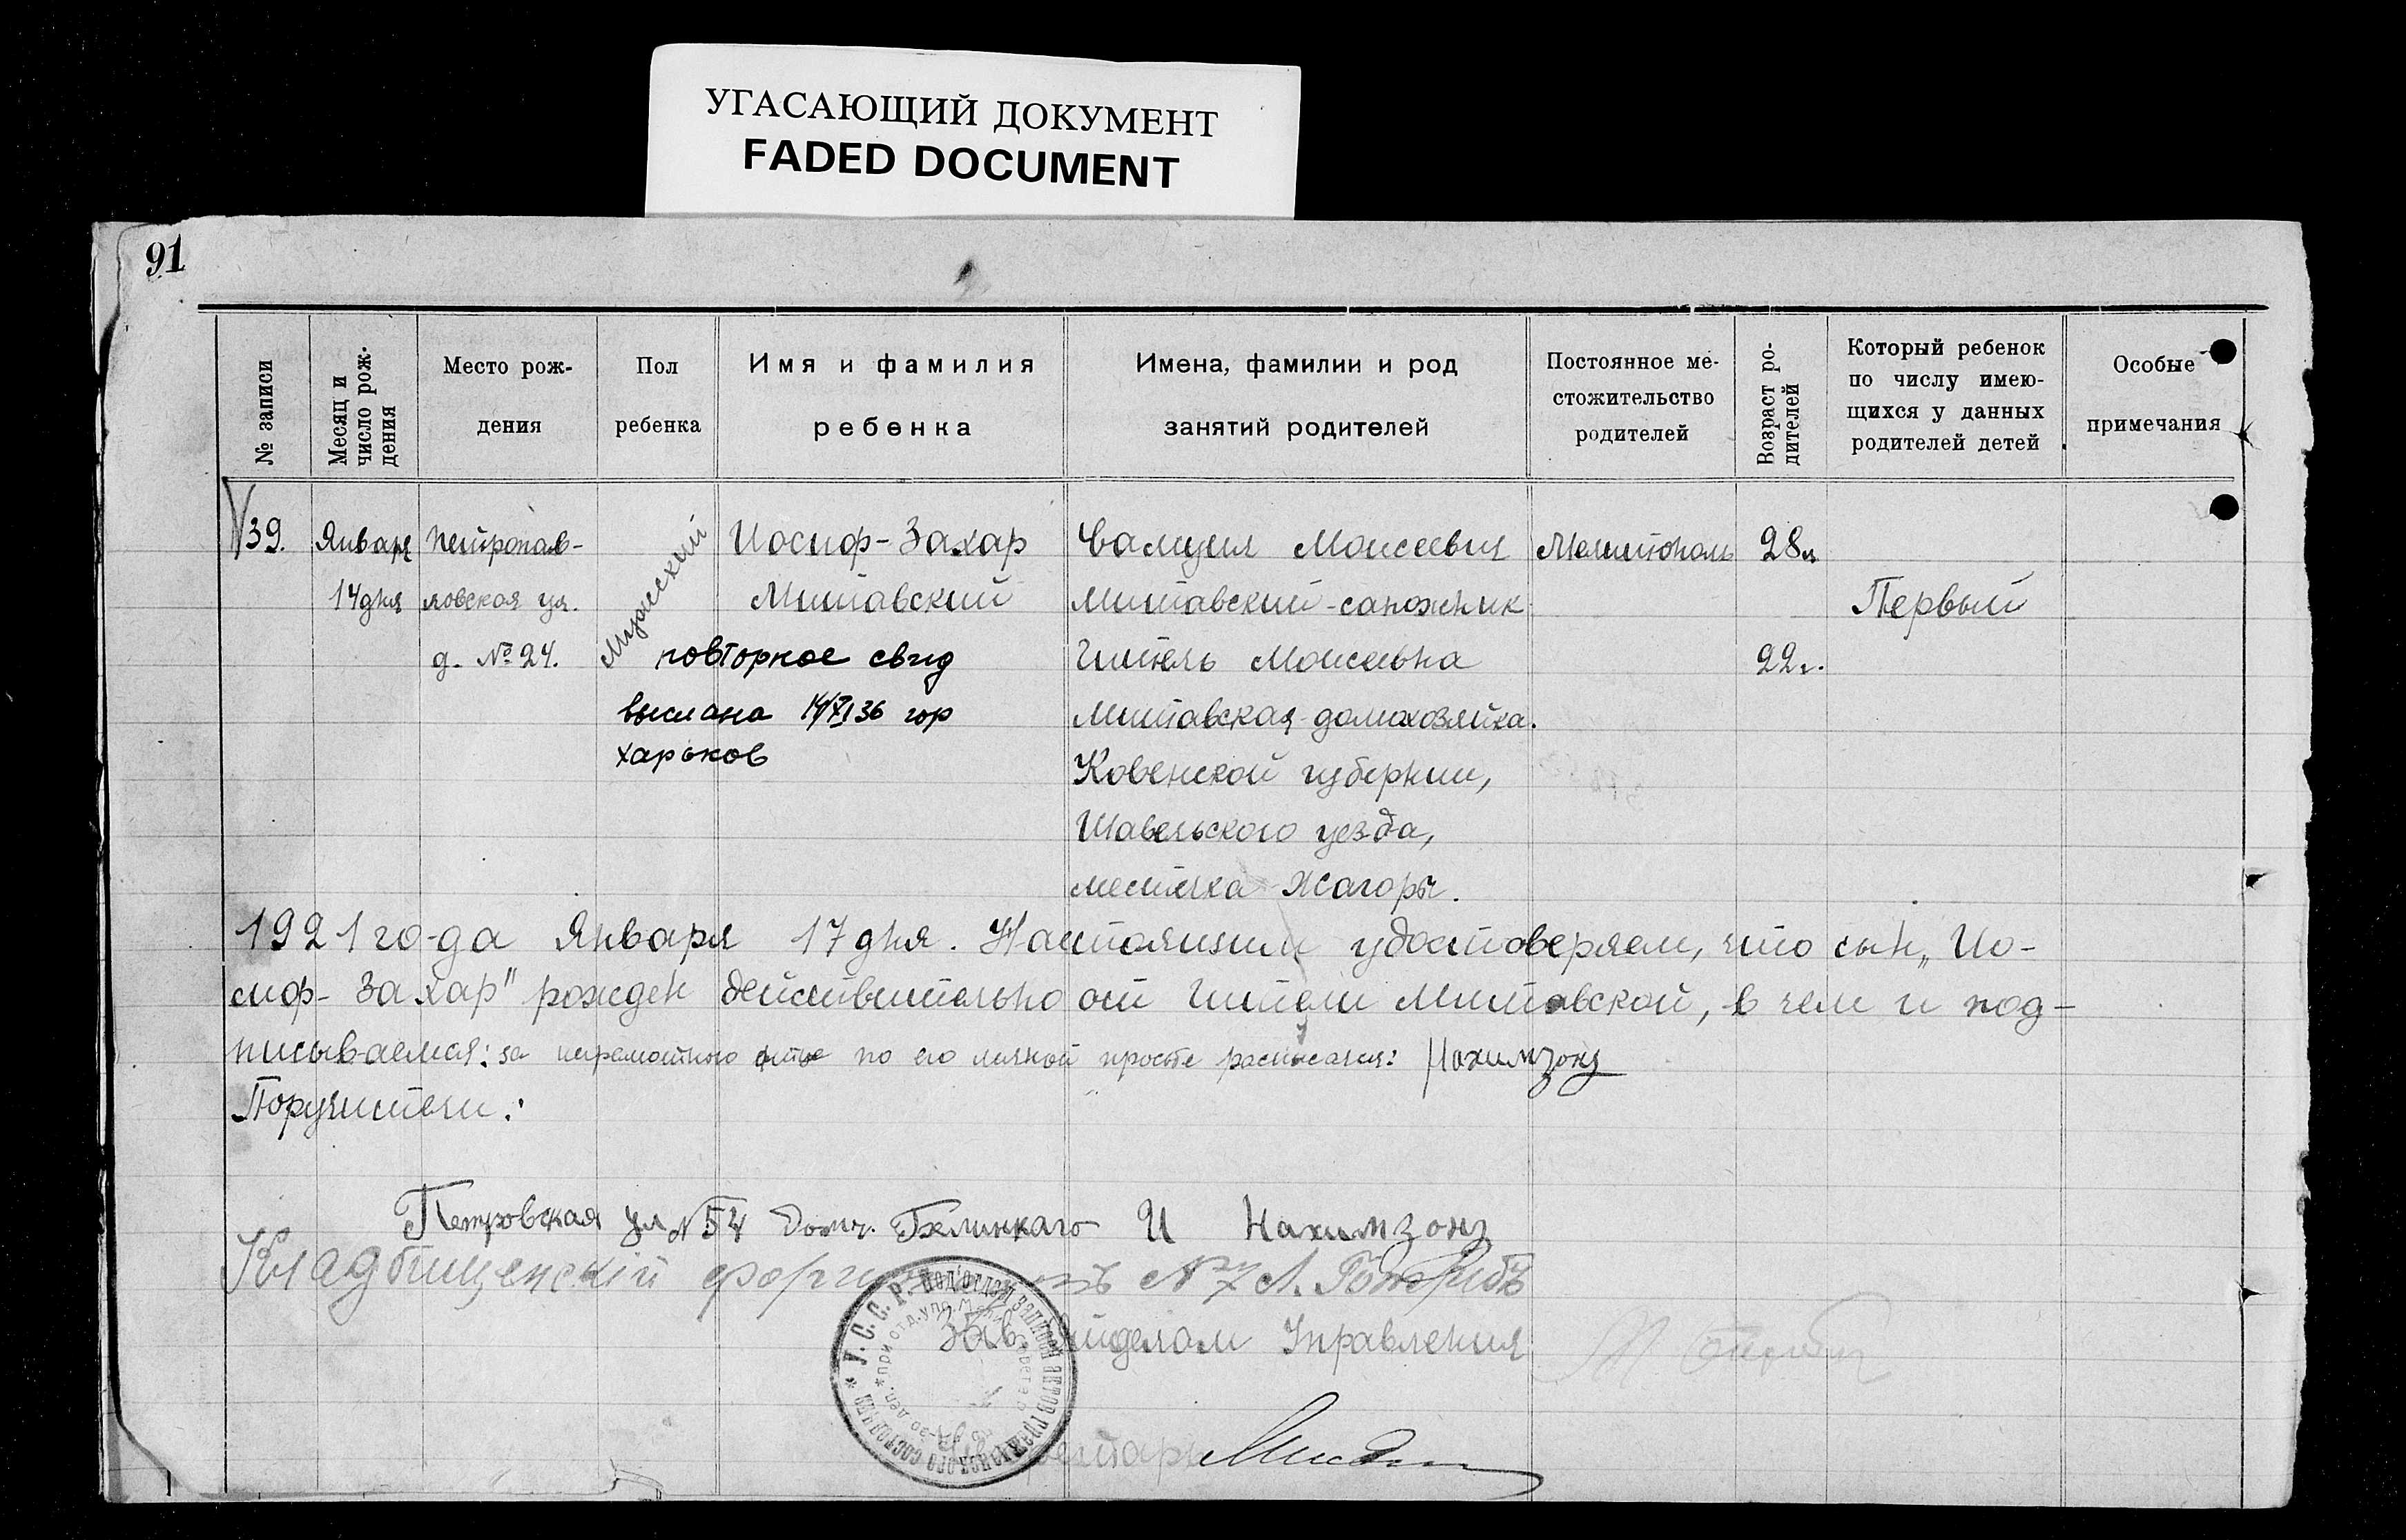 УГАСАЮЩИЙ ДОКУМЕНТ
FADED DOCUMENT
91
№ записи
Месяц и число рож-дения
Место рож-дения
Пол ребенка
Имя и фамилия ребенка
Имена, фамилии и род занятий родителей
Постоянное ме-стожительство родителей
Возраст ро-дителей
Который ребенок по числу имею-щихся у данных родителей детей
Особые примечания
39.
Января
14 дня
Петропав-
ловская ул.
д. № 24.
Мужеский
Иосиф-Захар
Митавский
повторное свид
выслана 14/XI 36 гор
харьков
Самуил Моисеевич
Митавский-сапожник
Гитель Моисеевна
Митавская-домохозяйка.
Ковенской губернии,
Шавельского уезда,
местечка Жагоры.
Мелитополь
28 л
22 г.
Первый
1921 го-да Января 17 дня. Настоящим удостоверяем, что сын „Ио-
сиф-Захар" рожден действительно от Гители Митавской, в чем и под-
писываемся: за неграмотного по его личной просьбе расписался: Нахимзонъ
Поручители:
Петровская ул N 54 дом. И Нахимзонъ
Кладбищенскій N 7 Л.
Зав. Отделом Управления
Секретарь
У.С.С.Р. Под'отдел записей актов гражданского состояния